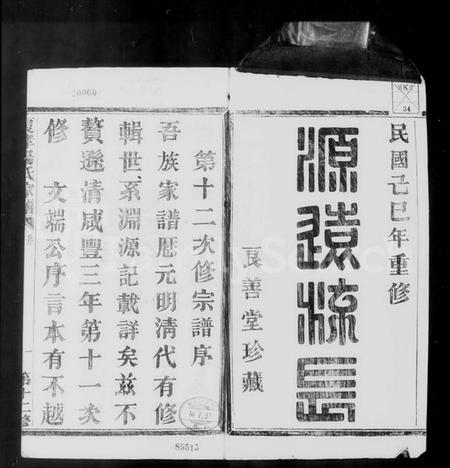 民國己巳年重修
源遠流長
艮善堂珍藏
第十二次修宗譜序
吾族家譜歷元明清代有修
輯世系淵源記載詳矣茲不
贅遜清咸豐三年第十一次
修 文端公序言本有不越
第十二修
10060
SKS
34
85515